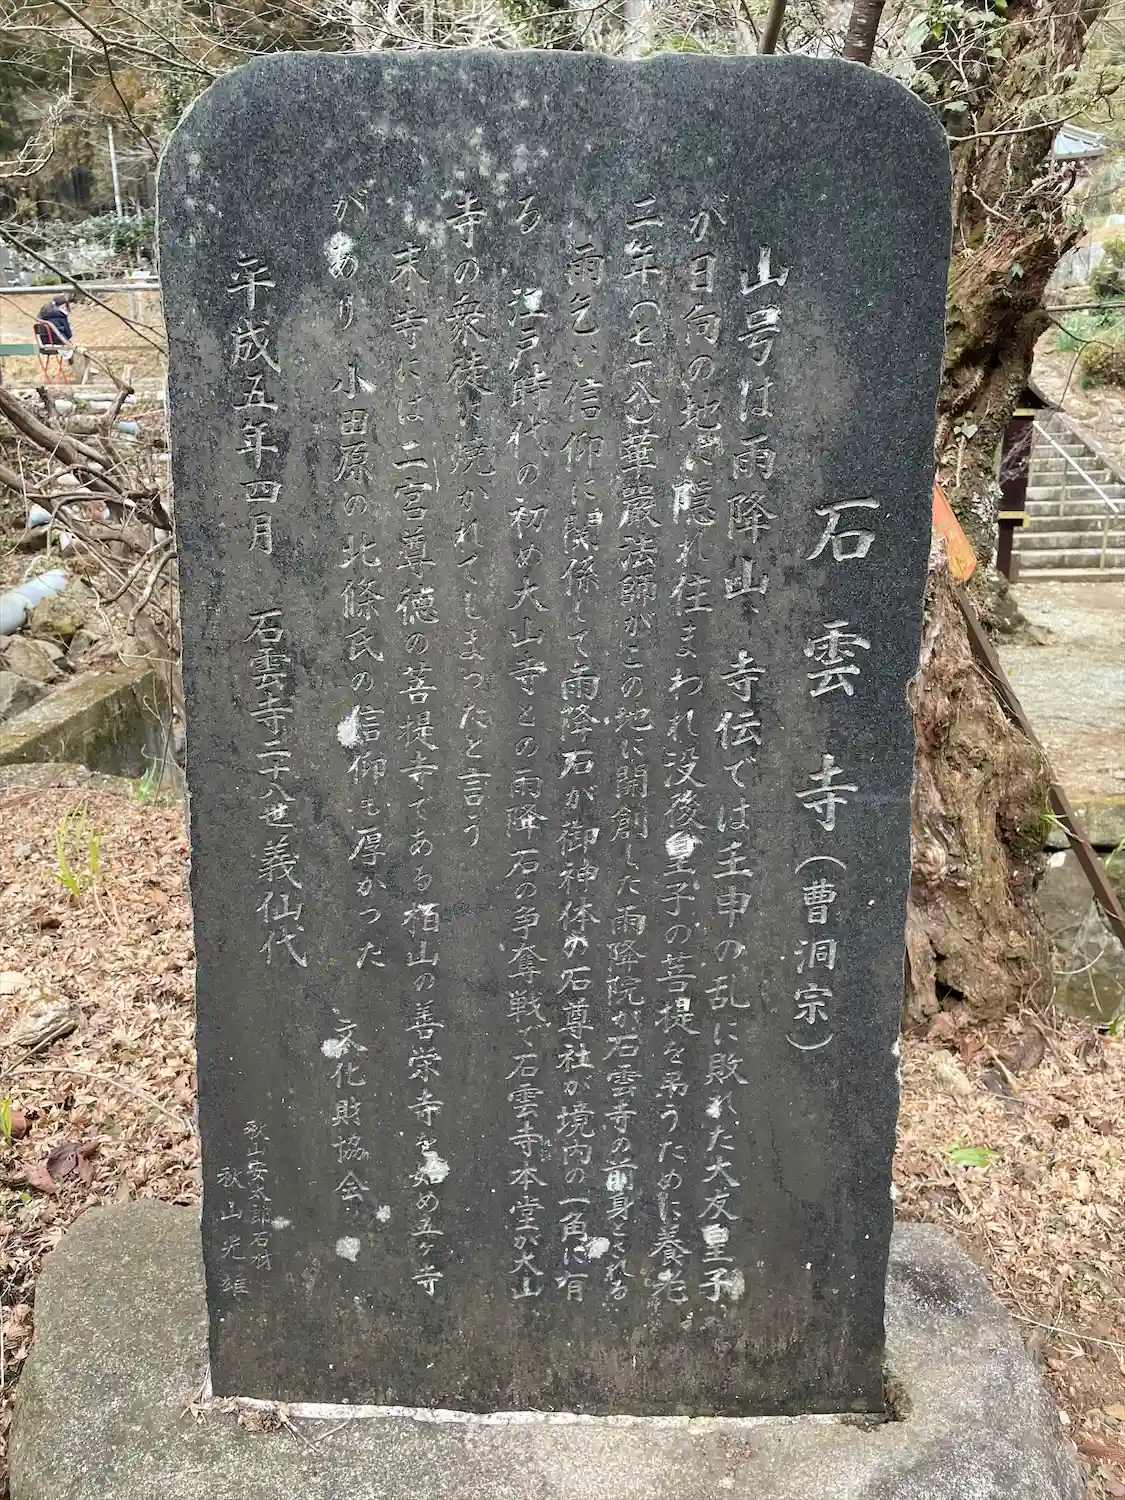 石雲寺(曹洞宗)
山号は雨降山 寺伝では壬申の乱に敗れた大友皇子
が日向の地に隠れ住まわれ没後皇子の菩提を弔うために養老
二年(七一八)華厳法師がこの地に開創した雨降院が石雲寺の前身とされる
雨乞い信仰に関係して雨降石が御神体の石尊社が境内の一角に有
る 江戸時代の初め大山寺との雨降石の争奪戦で石雲寺本堂が大山
寺の衆徒に焼かれてしまったと言う
末寺には二宮尊徳の菩提寺である栢山の善栄寺を始め五ヶ寺
があり 小田原の北條氏の信仰も厚かった 文化財協会
平成五年四月 石雲寺二十八世義仙代
秋山安太郎石材
秋山光雄